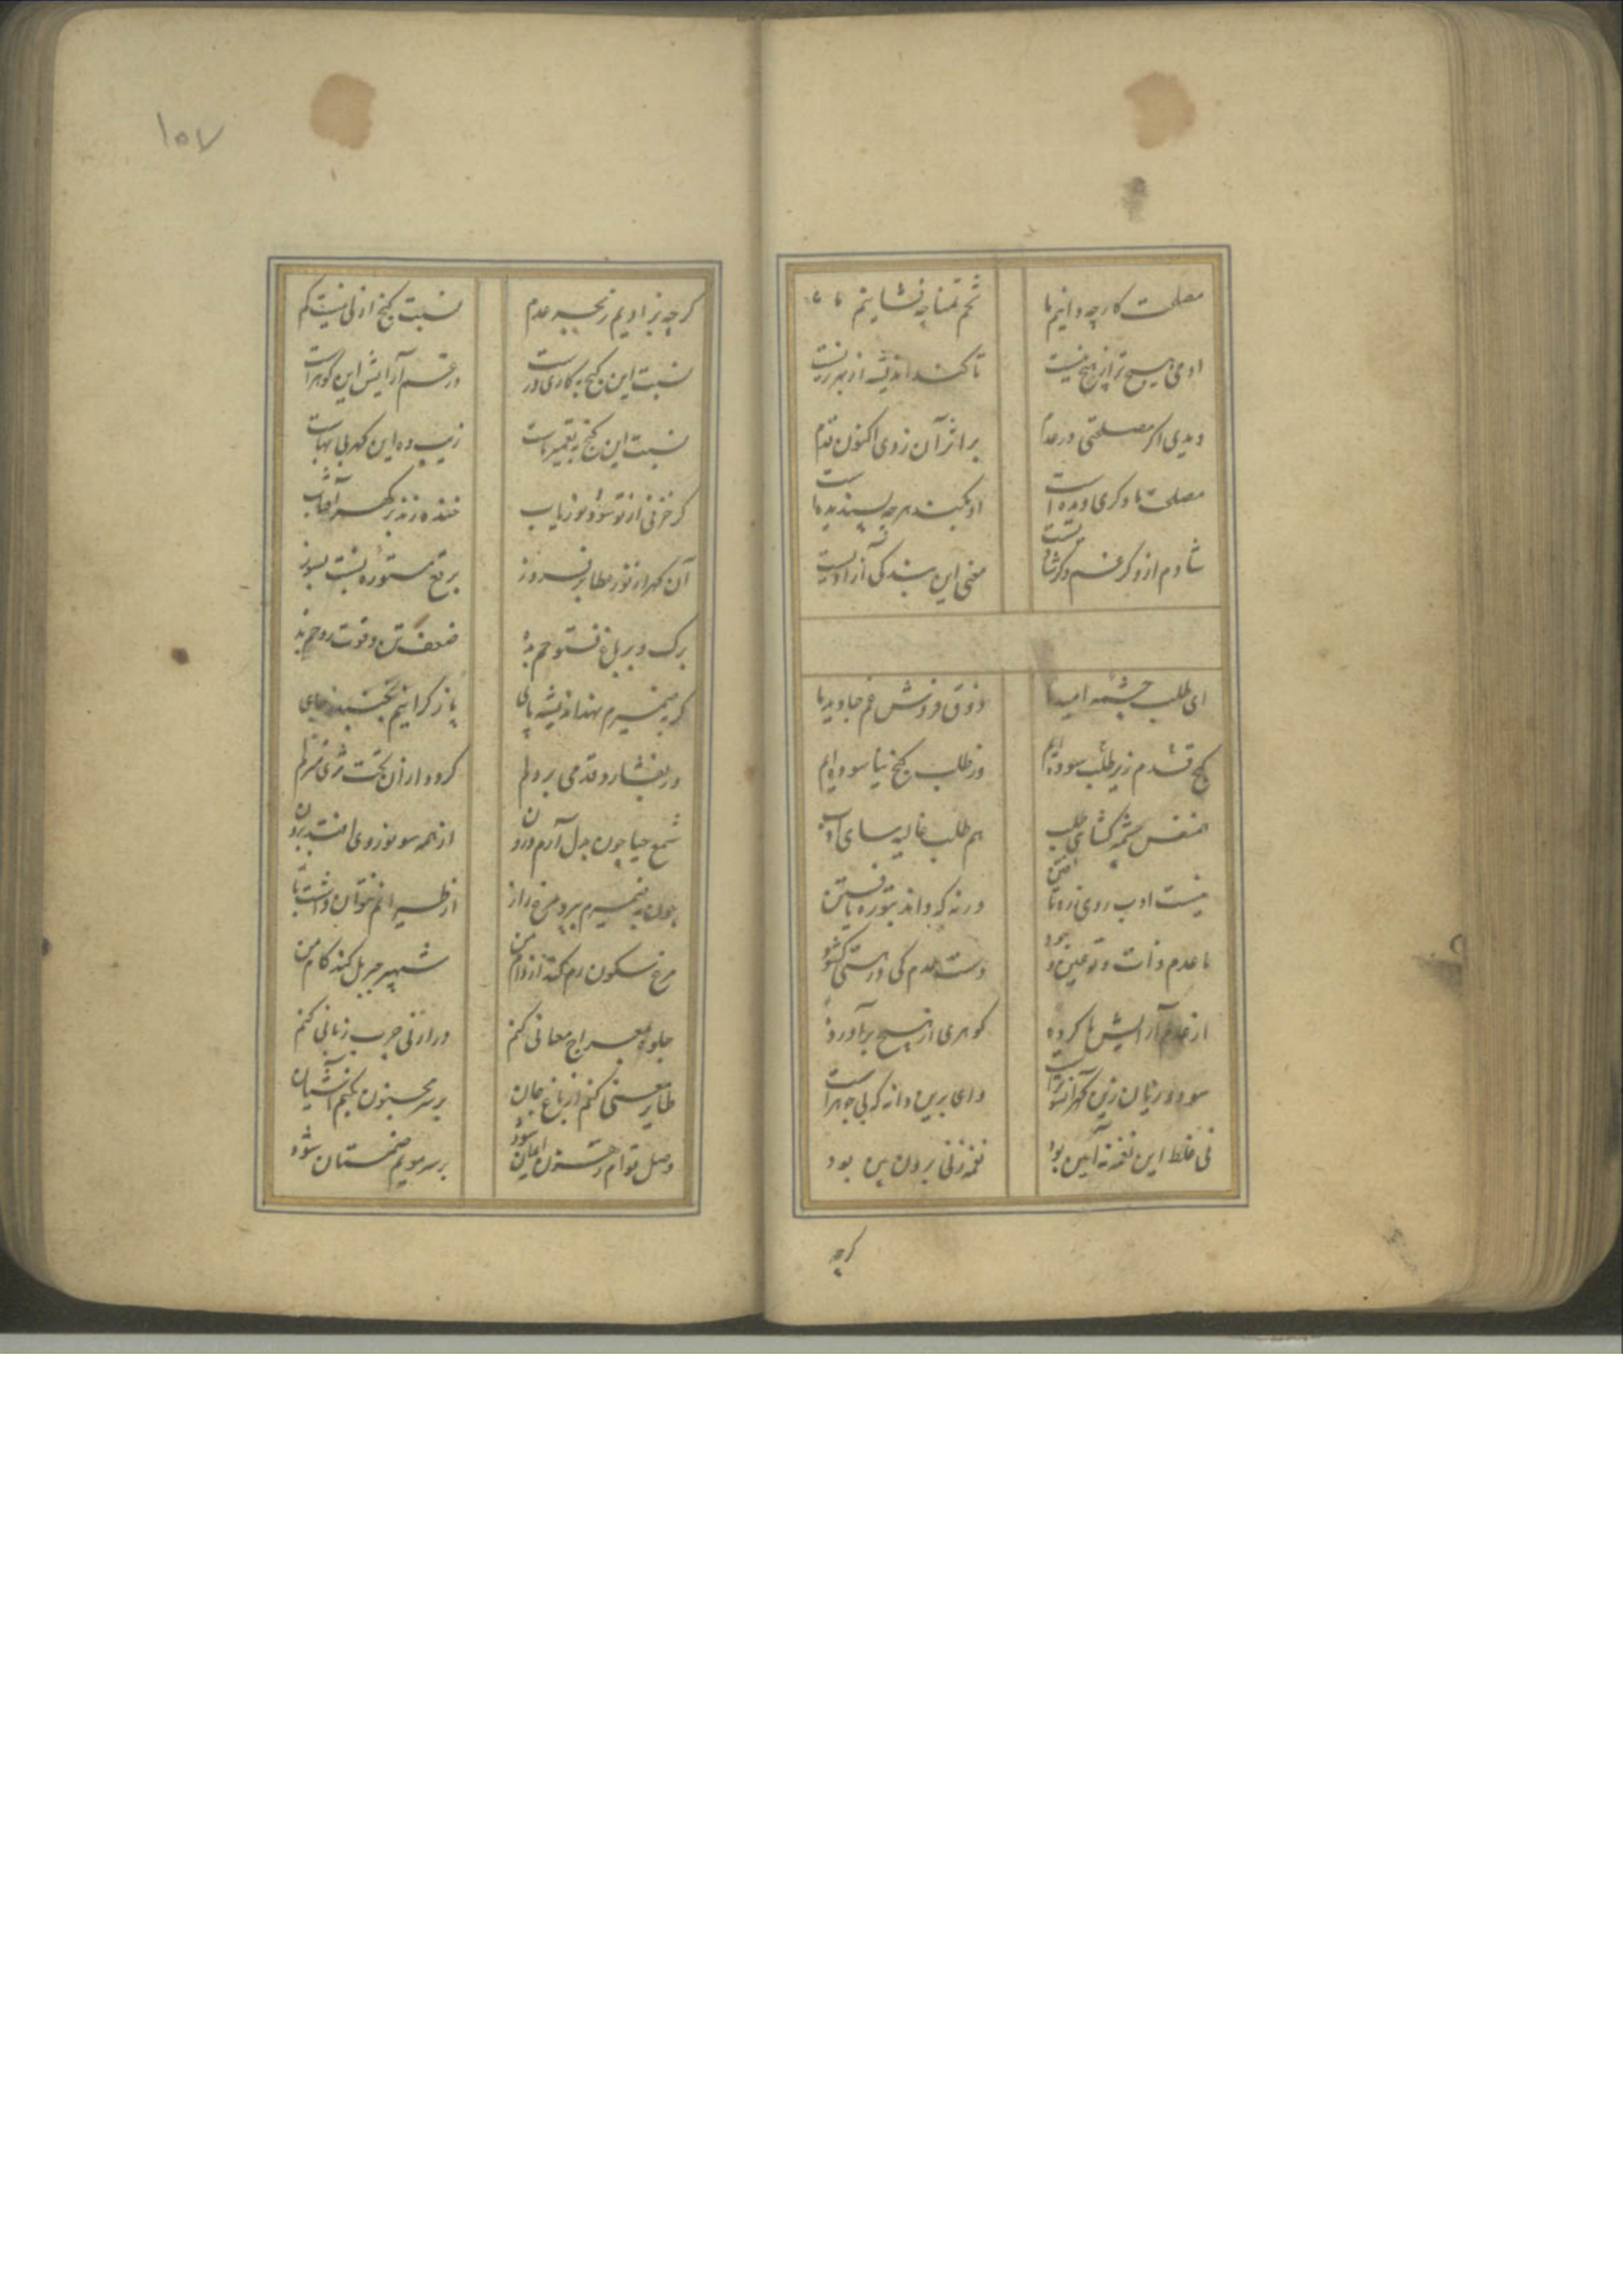 مصلحت کار چه دانیم ما	تخم تمنا چه فشانیم ما
آدمی هیچ تر از هیچ نیست	تا کند اندیشه از بهر زیست
دیدی اگر مصلحتی در عدم	بر اثر آن زدی اکنون قدم
مصلحت ما دگری دیده است	او بکند هرچه پسندیده است
شادم ازو گر غم و گر شادیست	معنی این بندگی آزادیست
ای طلب چشمه امید ما	ذوق فروش غم جاوید ما
گنج قدم زیر طلب سوده‌ایم	وز طلب گنج نیاسوده‌ایم
هم نفس چشمه گشای طلب	هم طلب غالیه سای ادب
نیست ادب روی ز ره تافتن	ورنه که داند بتو ره یافتن
ما عدم و ذات تو عین وجود	دست عدم کی در هستی گشود
از عدم آرایش ما کرده	گوهری از هیچ برآورده
سود و زیان زین گهر	وای برین دانه که بی جوهر است
نی غلط این نغمه نه آیین بود	نغمه زنی برون بود
گرچه
۱۵۷
گرچه نزادیم ز عدم	نسبت گنج ازلی نیست کم
نسبت این گنج	در قسم آرایش این گوهر است
نسبت این گنج به تعمیر ماست	زیب ده این گهر بی بهاست
گر خزفی از تو شود نوریاب	خنده زند بر گهر آفتاب
آن گهر از نور عطا برفروز	برقع مستوره بسوز
برگ و بر باغ فتوحم بده	ضعف تن و قوت روحم بده
گر بضمیرم نهد اندیشه پای	باز گرانیم نجنبد ز جای
ور بفشارد قدمی بر دلم	گرد
شمع حیا چون بدل آرم درون	از همه سو نور وی افتد برون
چون ز ضمیرم بپرد مرغ راز	از طیرانم نتوان داشت باز
مرغ سکون رم کند از دام من	شهپر جبریل کند کام من
جلوه معراج معانی کنم	در ارنی چرب زبانی کنم
طایر معنی کنم از باغ جان	بر سر مجنون نکنم آشیان
وصل تو ام	بر سر مویم صنمستان شود